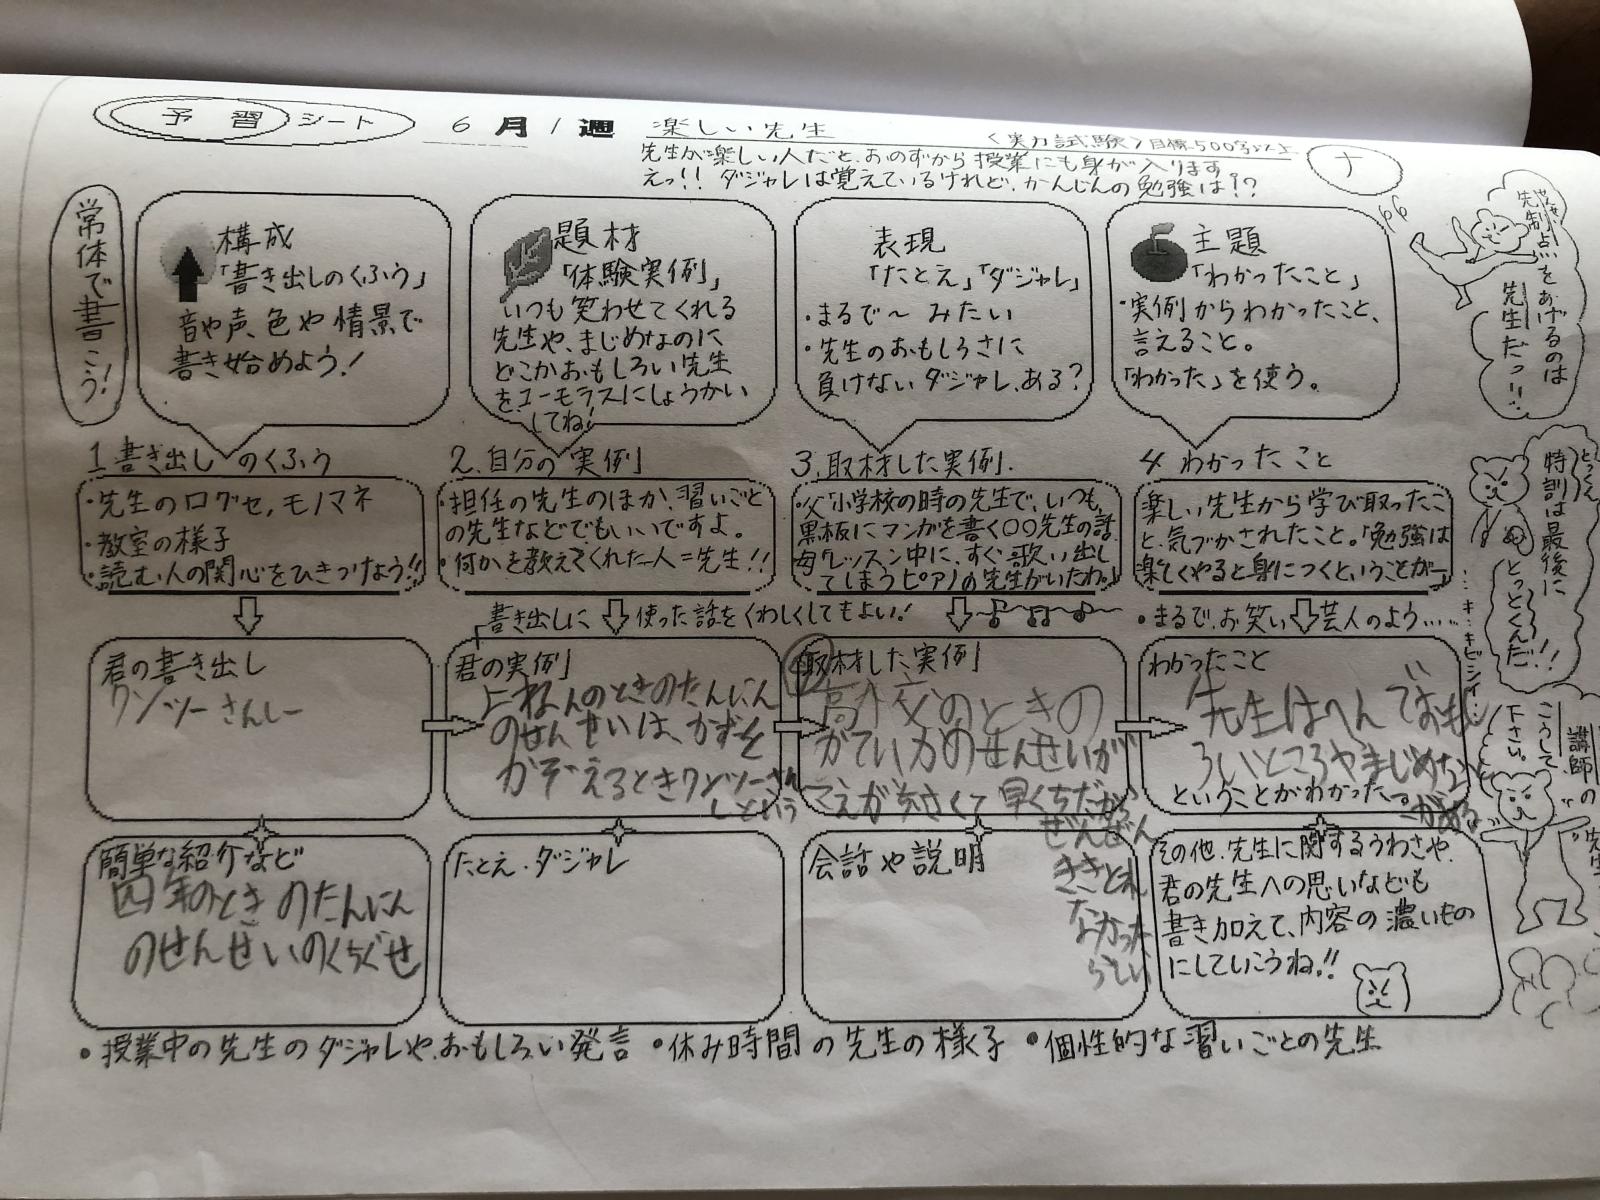 予習シート 6月1週 楽しい先生 〈実力試験〉目標500字以上
先生が楽しい人だと、おのずから授業にも身が入ります
えっ!! ダジャレは覚えているけれど、かんじんの勉強は!?
ナ
常体で書こう!
構成
「書き出しのくふう」
音や声、色や情景で
書き始めよう!
題材
「体験実例」
いつも笑わせてくれる
先生や、まじめなのに
どこかおもしろい先生
を、ユーモラスにしょうかい
してね!
表現
「たとえ」「ダジャレ」
・まるで〜みたい
・先生のおもしろさに
負けないダジャレ、ある?
主題
「わかったこと」
・実例からわかったこと、
言えること。
「わかった」を使う。
先制点をあげるのは
先生だっ!!
1.書き出しのくふう
・先生のログセ,モノマネ
・教室の様子
・読む人の関心をひきつけよう!!
2.自分の実例」
・担任の先生のほか、習いごと
の先生などでもいいですよ。
・何かを教えてくれた人=先生!!
3.取材した実例.
・父「小学校の時の先生で、いつも、
黒板にマンガを書く〇〇先生の話
母「レッスン中に、すぐ歌い出し
てしまうピアノの先生がいたわ。」
4 わかったこと
楽しい先生から学び取ったこ
と、気づかされたこと。「勉強は
楽しくやると身につくということが―
特訓は最後に
とっとくんだ!!
・・・キ・キビシイ・・・
書き出しに使った話をくわしくしてもよい!
・まるで、お笑い芸人のよう……
君の書き出し
ワンツーさんしー
君の実例」
よねんのときのたんにん
のせんせいは、かずを
かぞえるときワンツーさん
しという
取材した実例」
高校のときの
かていかのせんせいが
こえが小さくて早くちだから
ぜんぜん
ききとれ
なかった
らしい
わかったこと
先生はへんでおもし
ろいところやまじめな
ということがわかった。
がある
講師の
こうして
下さい。
簡単な紹介など
四年のときのたんにん
のせんせいのくちぐせ
たとえ・ダジャレ
会話や説明
その他、先生に関するうわさや、
君の先生への思いなども
書き加えて、内容の濃いもの
にしていこうね!!
・授業中の先生のダジャレや、おもしろい発言 ・休み時間の先生の様子 ・個性的な習いごとの先生